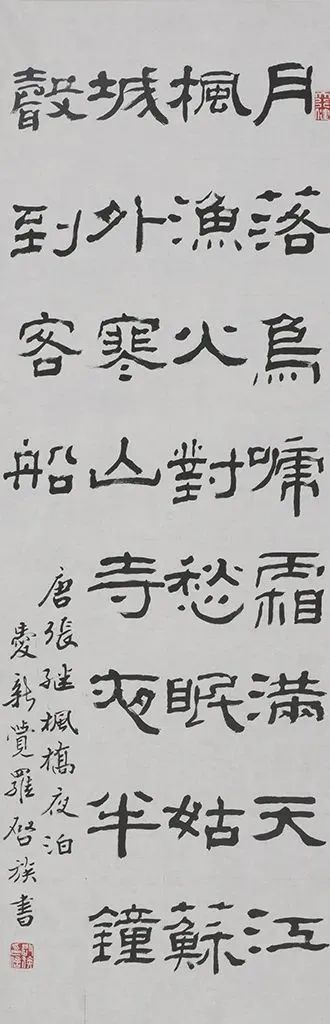 月落烏啼霜滿天江
楓漁火對愁眠姑蘇
城外寒山寺夜半鐘
聲到客船
唐張繼楓橋夜泊
愛新覺羅啓族書